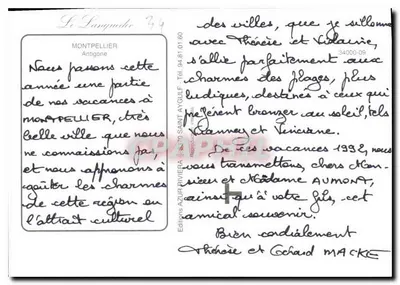 Le Languedoc 34
MONTPELLIER
Antigone
Nous passons cette
année une partie
de nos vacances à
MONTPELLIER, très
belle ville que nous
ne connaissions pas
et nous apprenons à
goûter les charmes
de cette région où
l'attrait culturel
des villes, que je sillonne
avec Thérèse et
s'allie parfaitement aux
charmes des plages, plus
ludiques, destinés à ceux qui
préfèrent bronzer au soleil, tels
et
De ces vacances 1992, nous
vous transmettons, chers Mon-
sieur et Madame AUMONT,
ainsi qu'à votre fils, cet
amical souvenir.
Bien cordialement
Thérèse et Gérard MACKE
34000-09
Tél. 94.81.01.60